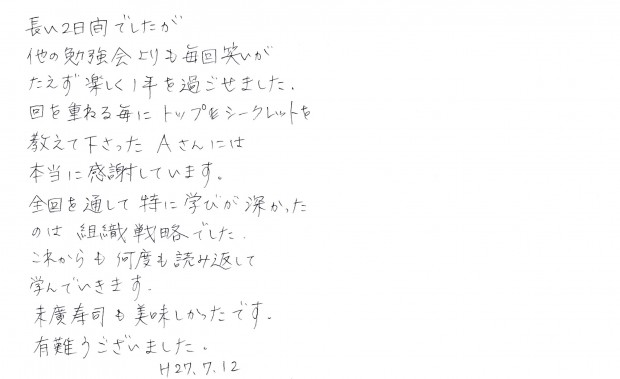 長い2日間でしたが
他の勉強会よりも毎回笑いが
たえず楽しく1年を過ごせました.
回を重ねる毎にトップシークレットを
教えて下さった Aさんには
本当に感謝しています。
全回を通して特に学びが深かった
のは 組織戦略でした.
これからも何度も読み返して
学んでいきます.
末廣寿司も美味しかったです.
有難うございました。
H27.7.12